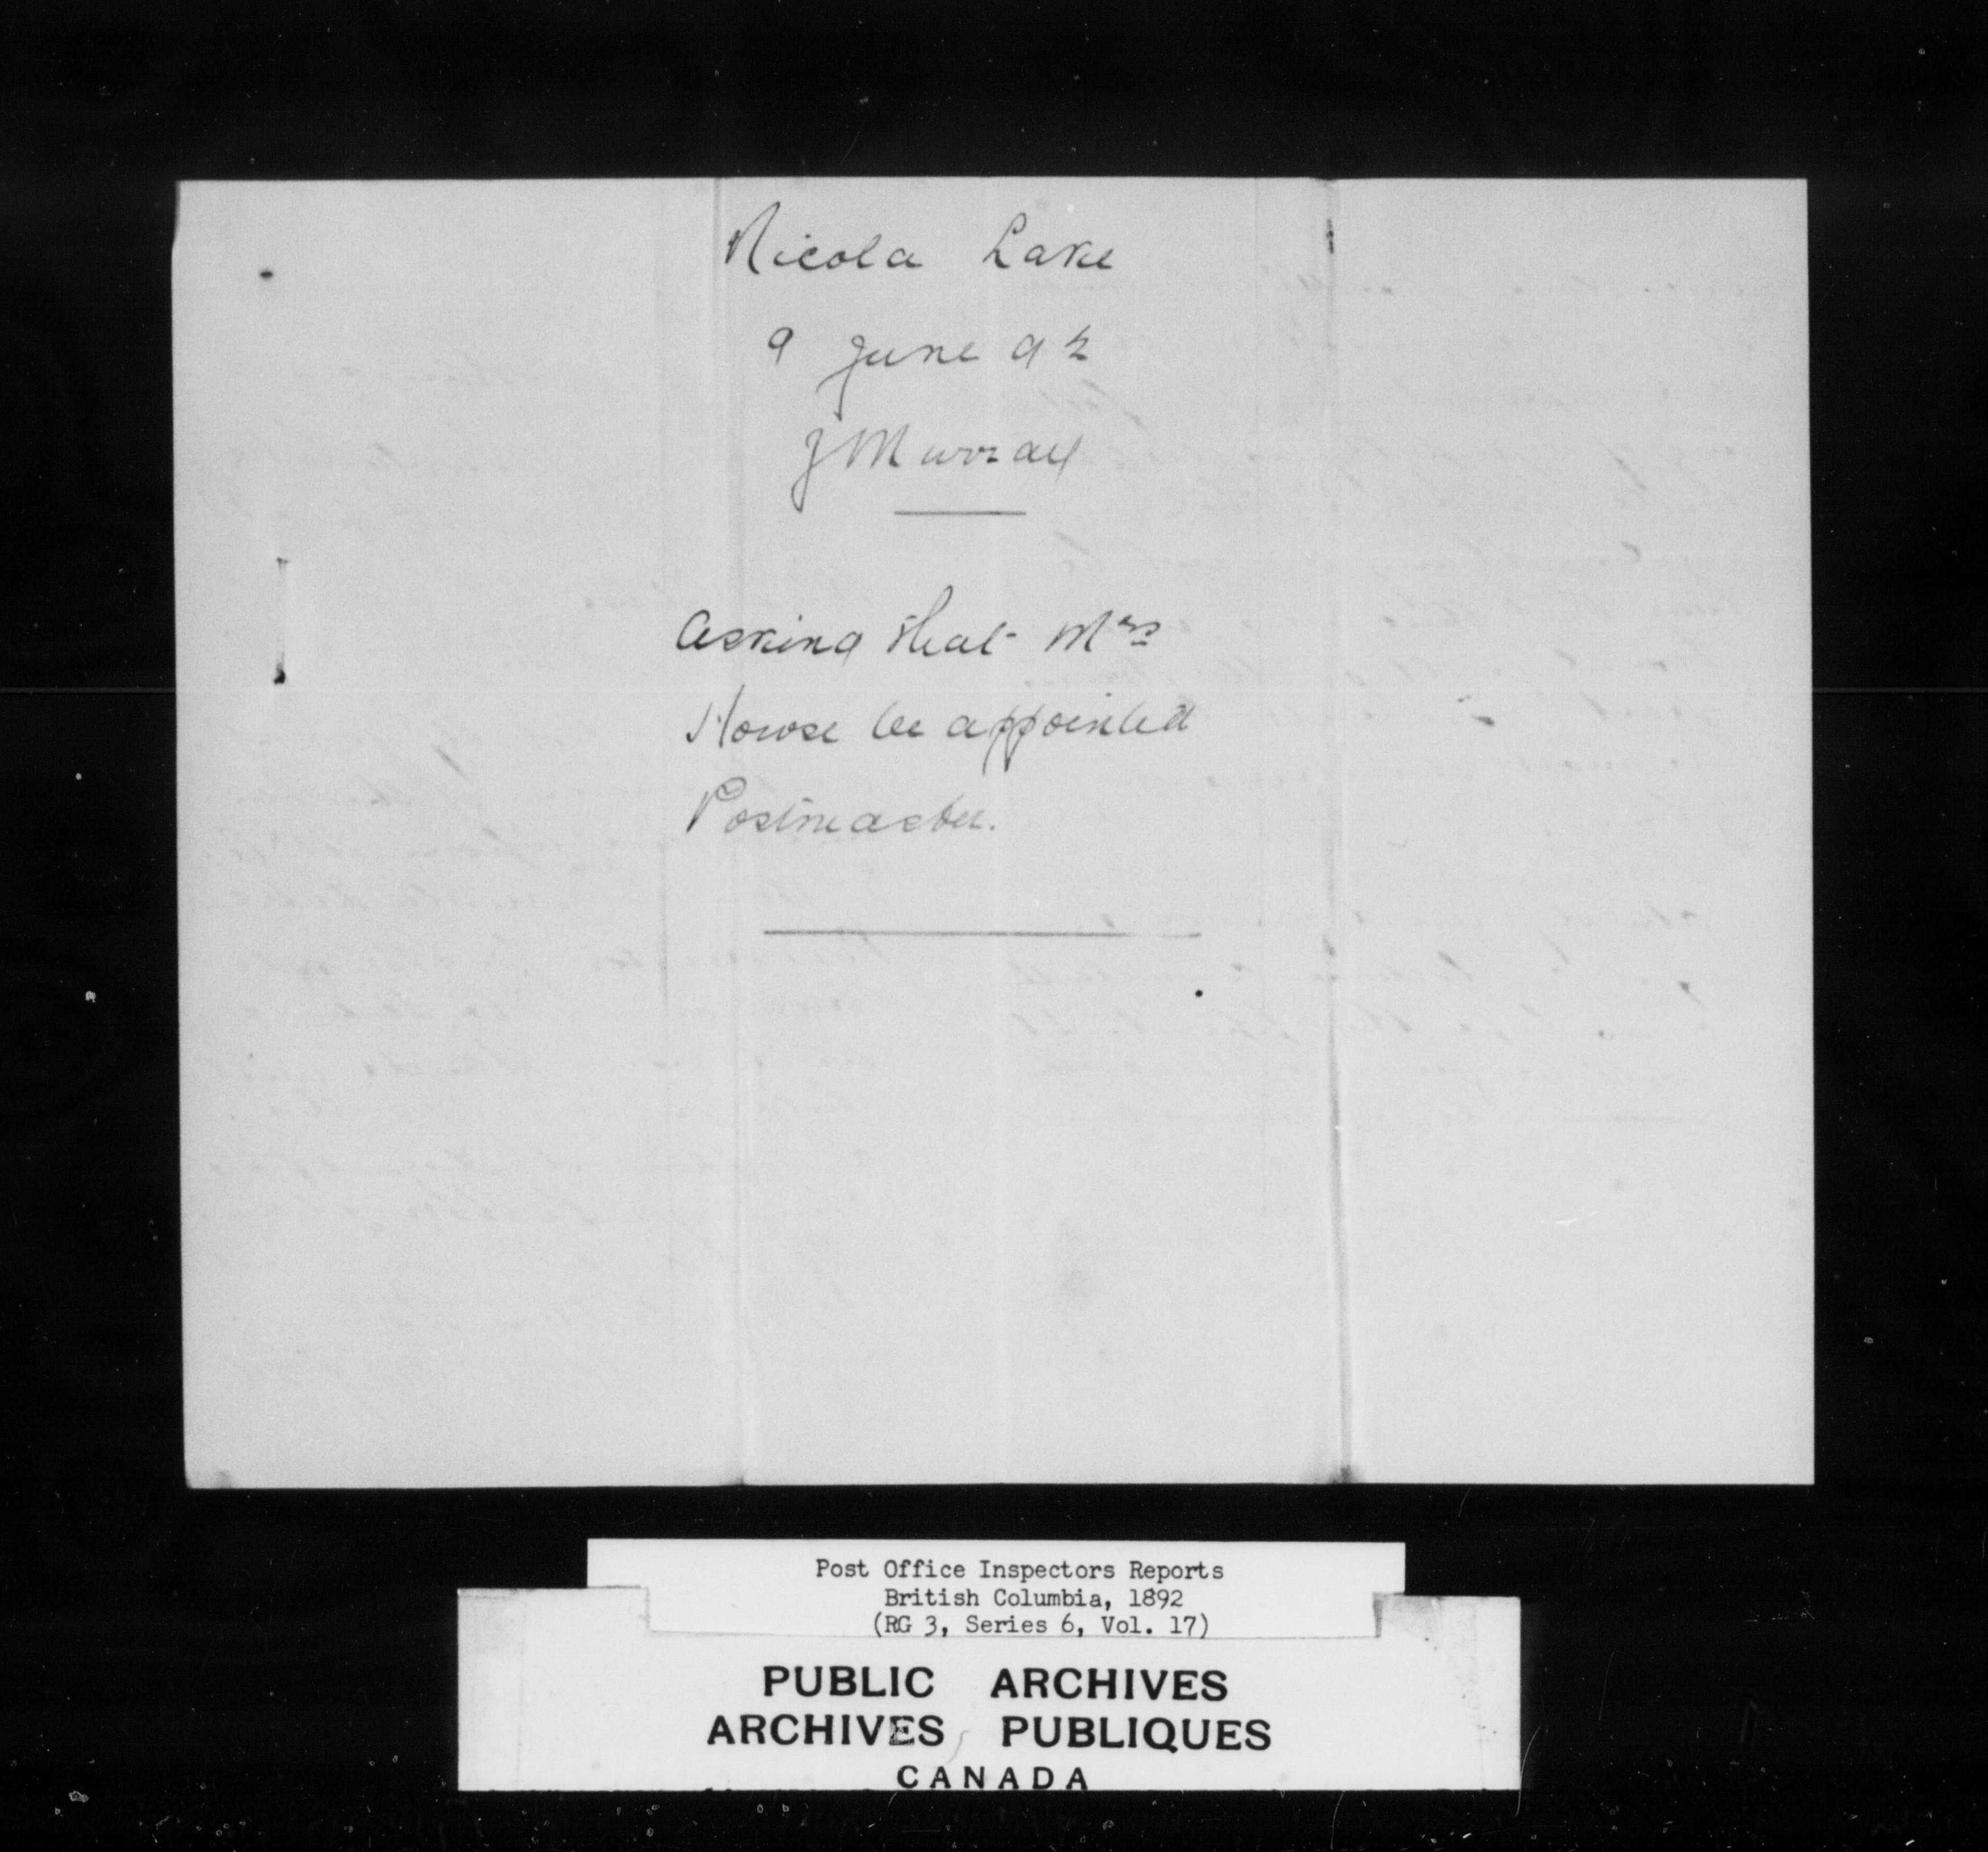 Nicola Lake
9 June 92
J Murray
Asking that Mrs
Howse be appointed
Postmaster.
Post Office Inspectors Reports
British Columbia, 1892
(RG 3, Series 6, Vol. 17)
PUBLIC ARCHIVES
ARCHIVES PUBLIQUES
CANADA